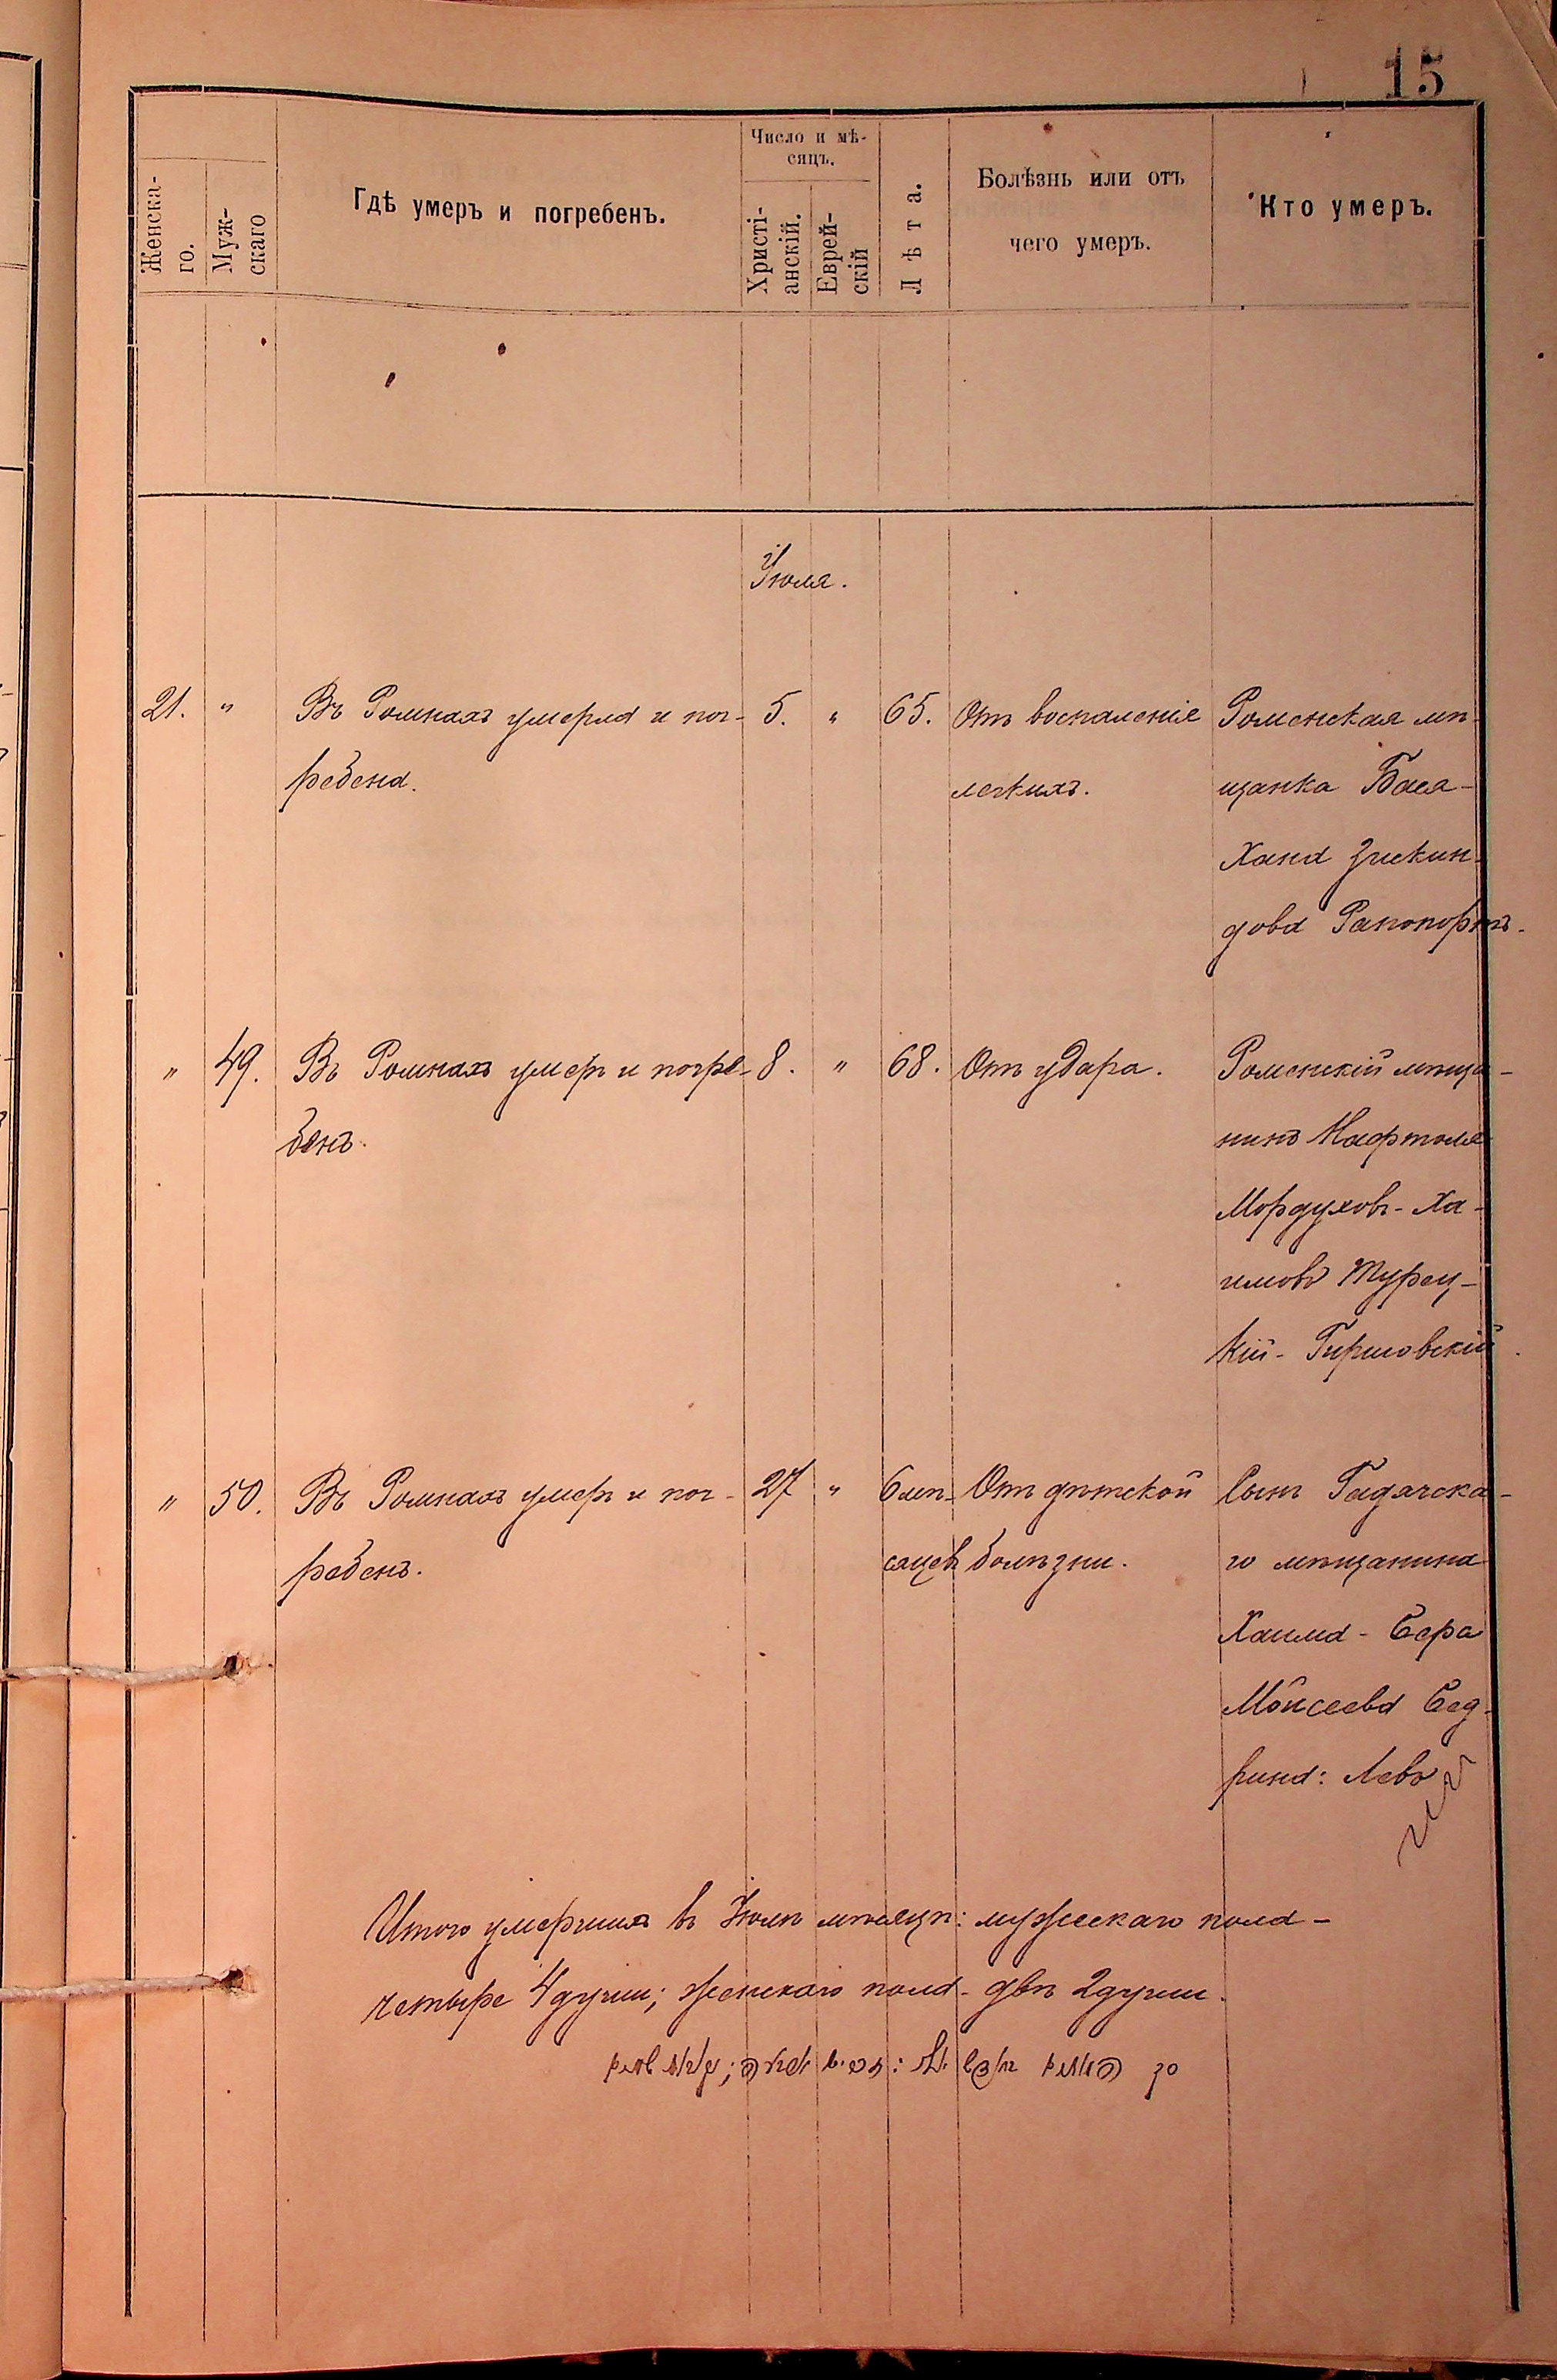 15
Женска-
го.
Муж-
скаго
Гдѣ умеръ и погребенъ.
Число и мѣ-
сяцъ.
Христі-
анскій.
Еврей-
скій
Лѣта.
Болѣзнь или отъ
чего умеръ.
Кто умеръ.
Іюля.
21. " Въ Ромнахъ умерла и пог- 5. " 65. Отъ воспаленія Роменская мѣ-
ребена. легкихъ. щанка Бася-
Хана Зискин-
дова Рапопортъ.
" 49. Въ Ромнахъ умеръ и погре- 8. " 68. Отъ удара. Роменскій мѣща-
бенъ. нинъ Нафтоля
Мордуховъ-Ха-
имовъ Турец-
кій-Гиршовскій.
" 50. Въ Ромнахъ умеръ и пог- 27 " 6 мѣ- Отъ дѣтской Сынъ Гадячска-
ребенъ. сяцевъ болѣзни. го мѣщанина
Хаима-Бера
Мойсеева Бед-
рина: Левъ
Итого умершихъ въ Іюлѣ мѣсяцѣ: мужескаго пола-
четыре 4 души; женскаго пола-двѣ 2 души.